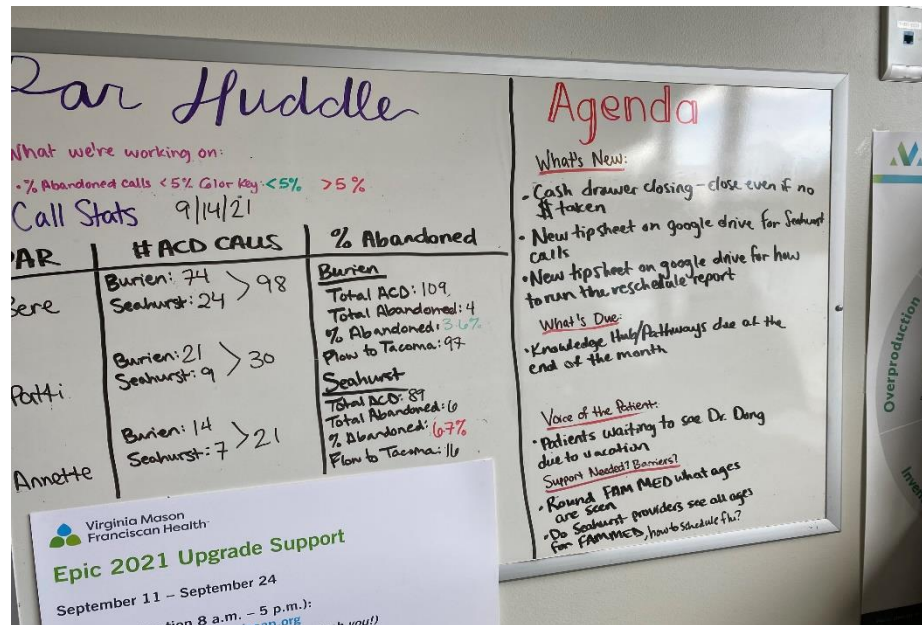 Par Huddle
What we're working on:
• % Abandoned Calls <5% Color Key: <5% >5%
Call Stats 9/14/21
PAR
# ACD CALLS
% Abandoned
Bere
Burien: 74
Seahurst: 24 > 98
Patti
Burien: 21
Seahurst: 9 > 30
Annette
Burien: 14
Seahurst: 7 > 21
Burien
Total ACD: 109
Total Abandoned: 4
% Abandoned: 3.6%
Flow to Tacoma: 97
Seahurst
Total ACD: 89
Total Abandoned: 6
% Abandoned: 6.7%
Flow to Tacoma: 16
Agenda
What's New:
• Cash drawer closing - close even if no
$ taken
• New tipsheet on google drive for Seahurst
calls
• New tipsheet on google drive for how
to run the reschedule report
What's Due:
• Knowledge Hub/Pathways due at the
end of the month
Voice of the Patient:
• Patients waiting to see Dr. Dang
due to vacation
Support Needed? Barriers?
• Round FAM MED what ages
are seen
• Do Seahurst providers see all ages
for FAMMED, how to schedule flu?
Virginia Mason
Franciscan Health
Epic 2021 Upgrade Support
September 11 – September 24
8 a.m. – 5 p.m.):
you!)
Overproduction